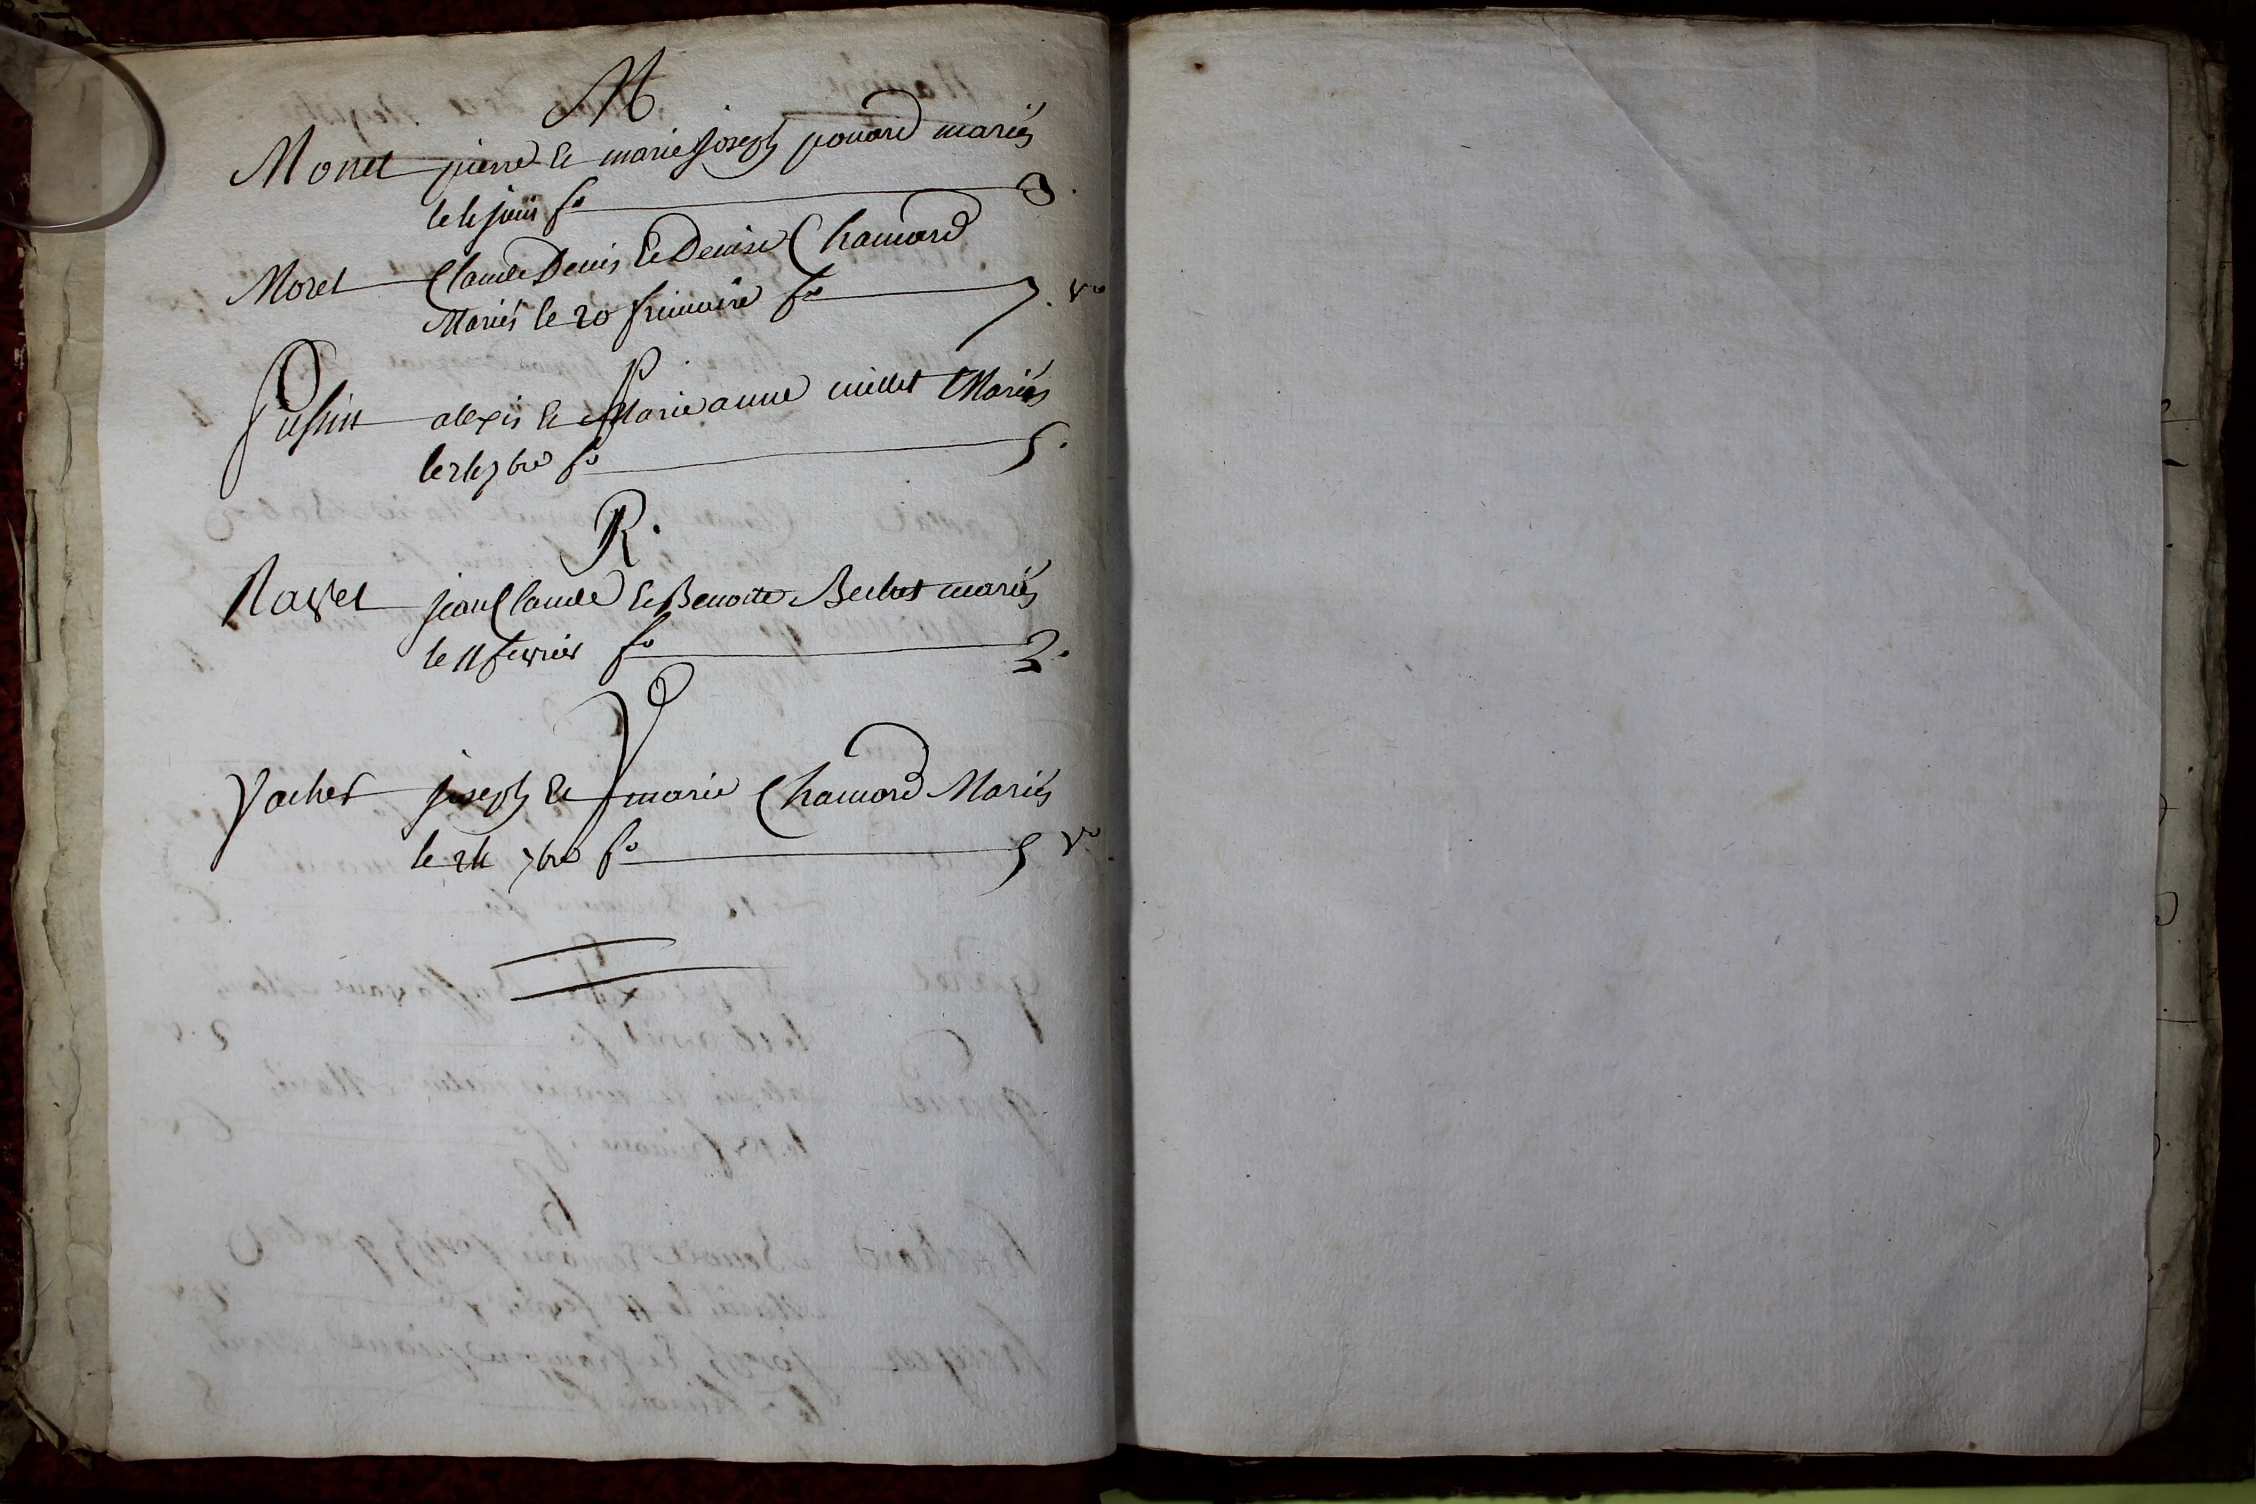 M
Monet pierre & marie joseph pouard mariés
le 4 juin f° 3.
Moret Claude Denis & Denise Chamard
Mariés le 20 frimaire f° 7. v°
P
alexis & Marie anne millet Mariés
le 24 7bre f° 5.
R.
Ravet jean Claude & Benoite Berbet mariés
le 11 fevrier f° 2.
V
Vacher joseph & marie Chamard Mariés
le 24 7bre f° 5 v°